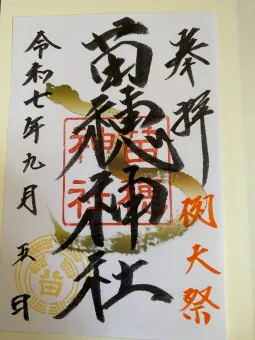 奉拝
例大祭
苗穂神社
苗穂神社
令和七年九月五日
苗